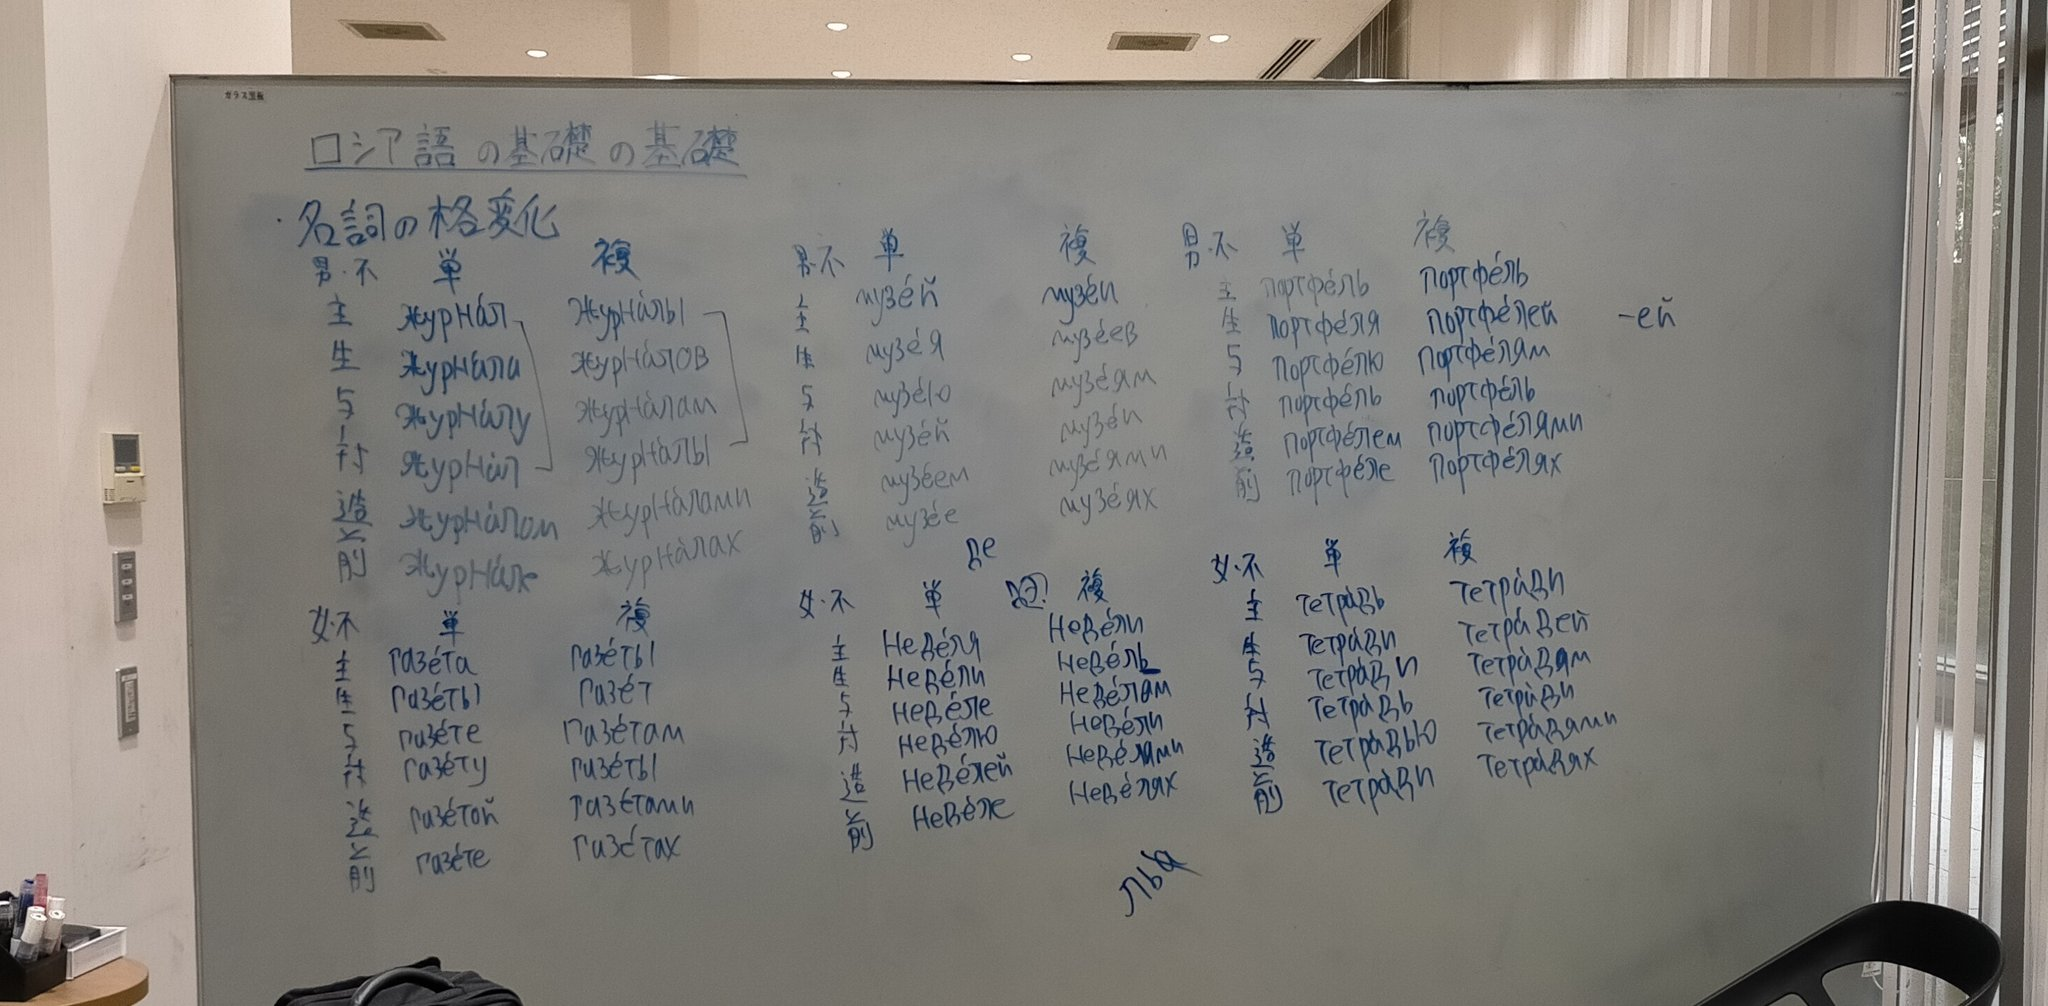 ガラス黒板
ロシア語の基礎の基礎
・名詞の格変化
男・不 単 複
主 журна́л журна́лы
生 журна́ла журна́лов
与 журна́лу журна́лам
対 журна́л журна́лы
造 журна́лом журна́лами
前 журна́ле журна́лах
男・不 単 複
主 музе́й музе́и
生 музе́я музе́ев
与 музе́ю музе́ям
対 музе́й музе́и
造 музе́ем музе́ями
前 музе́е музе́ях
男・不 単 複
主 портфе́ль портфе́ль
生 портфе́ля портфе́лей -ей
与 портфе́лю портфе́лям
対 портфе́ль портфе́ль
造 портфе́лем портфе́лями
前 портфе́ле портфе́лях
女・不 単 複
主 газе́та газе́ты
生 газе́ты газе́т
与 газе́те газе́там
対 газе́ту газе́ты
造 газе́той газе́тами
前 газе́те газе́тах
де
女・不 単 複
主 неде́ля неде́ли
生 неде́ли неде́ль
与 неде́ле неде́лам
対 неде́лю неде́ли
造 неде́лей неде́лями
前 неде́ле неде́лях
女・不 単 複
主 тетра́дь тетра́ди
生 тетра́ди тетра́дей
与 тетра́ди тетра́дям
対 тетра́дь тетра́ди
造 тетра́дью тетра́дями
前 тетра́ди тетра́дях
льа